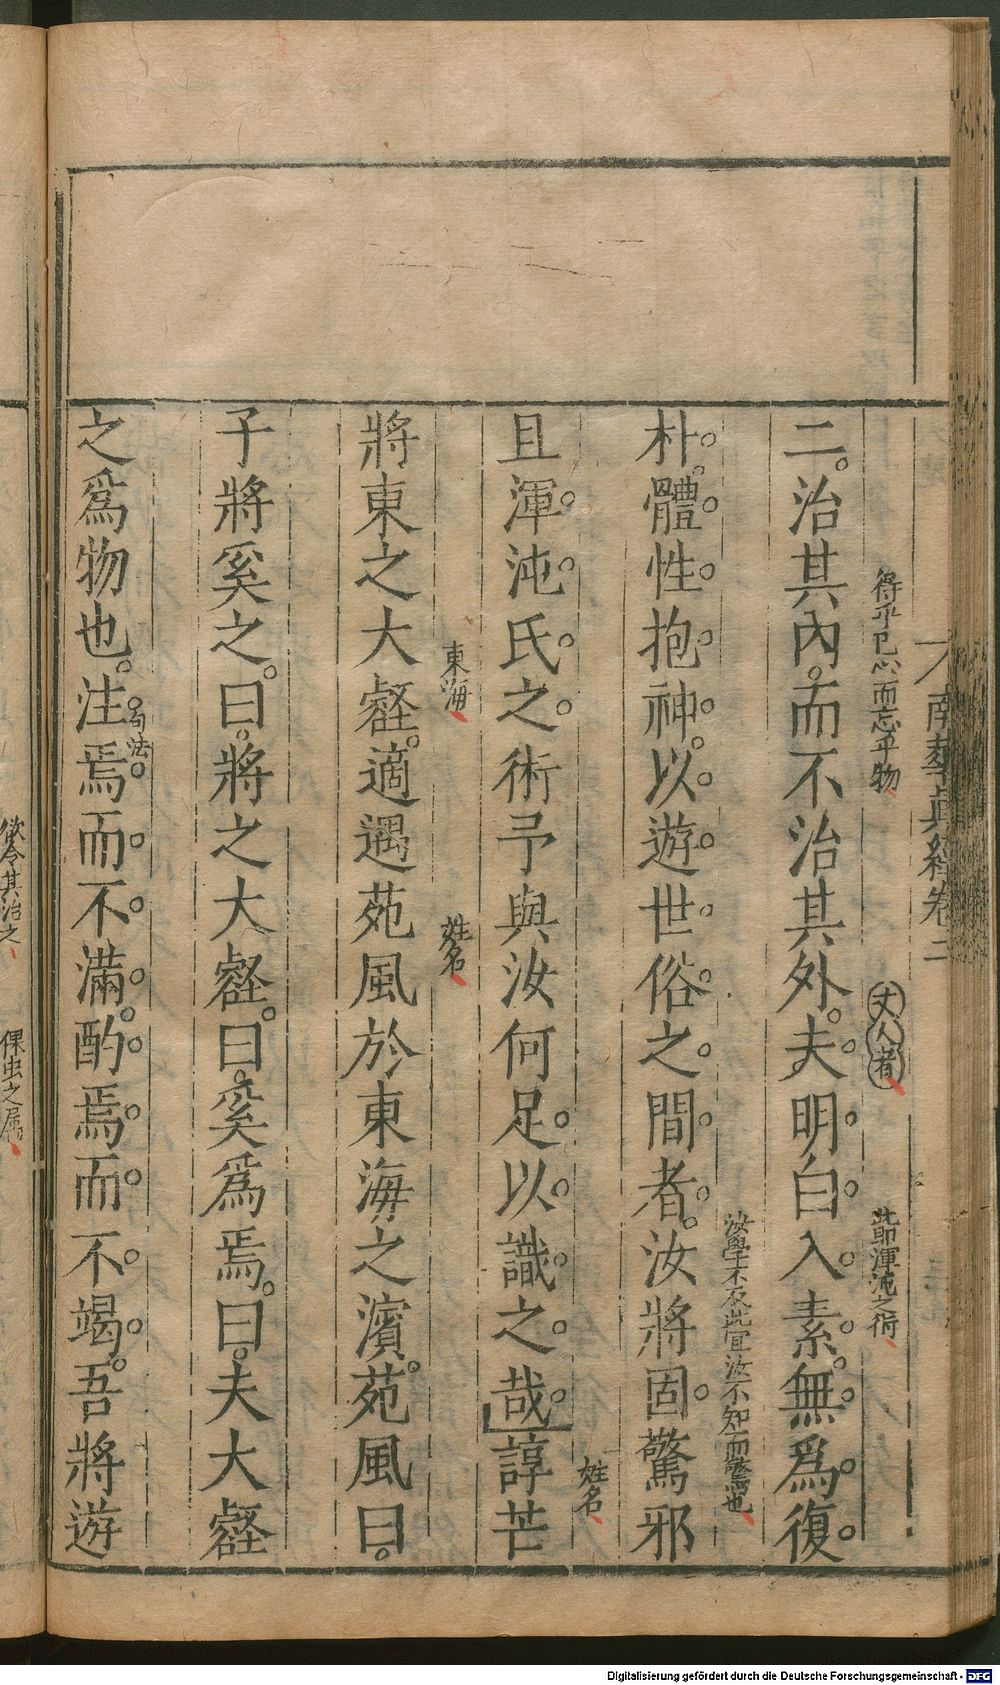 南華眞經卷二
得乎已心而忘乎物
丈人者
此卽渾沌之術
二治其內而不治其外夫明白入素無爲復
汝學未及此宜汝不知而驚也
朴體性抱神以遊世俗之間者汝將固驚邪
姓名
且渾沌氏之術予與汝何足以識之哉諄芒
東海
姓名
將東之大壑適遇苑風於東海之濱苑風曰
子將奚之曰將之大壑曰奚爲焉曰夫大壑
句法
之爲物也注焉而不滿酌焉而不竭吾將遊
欲令其治之
倮虫之属
Digitalisierung gefördert durch die Deutsche Forschungsgemeinschaft - DFG